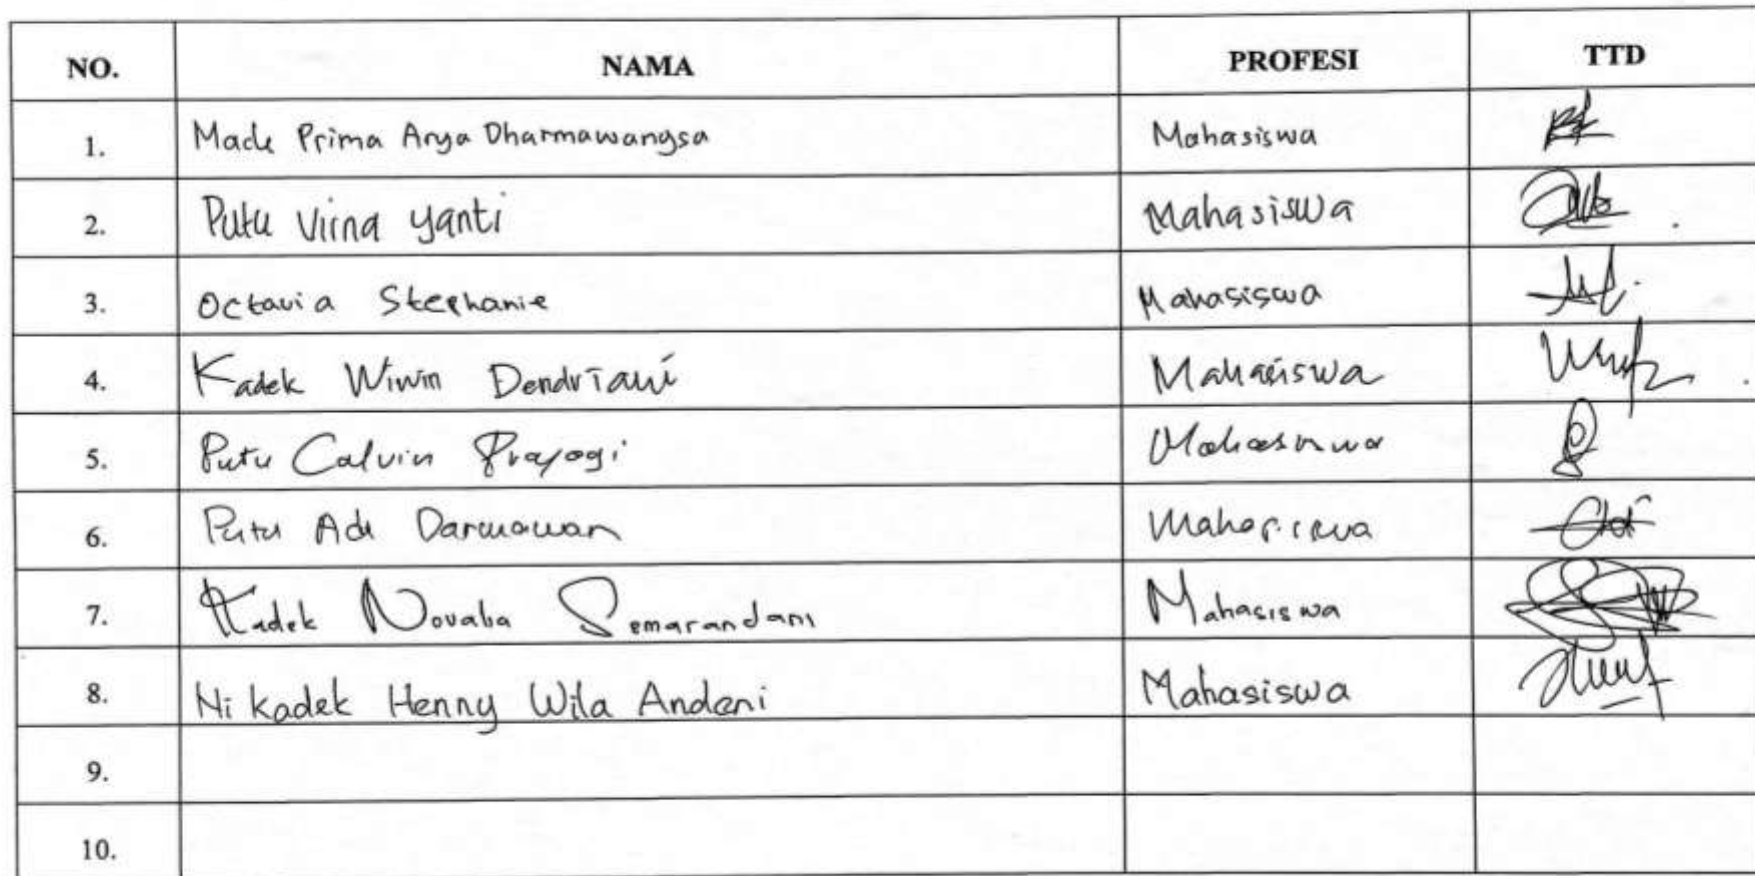 NO. NAMA PROFESI TTD
1. Made Prima Arya Dharmawangsa Mahasiswa
2. Putu Virna yanti Mahasiswa
3. Octavia Stephanie Mahasiswa
4. Kadek Wiwin Dendriani Mahasiswa
5. Putu Calvin Prayogi Mahasiswa
6. Putu Adi Darmawan Mahasiswa
7. Kadek Novalia Semarandani Mahasiswa
8. Ni kadek Henny Wila Andani Mahasiswa
9.
10.